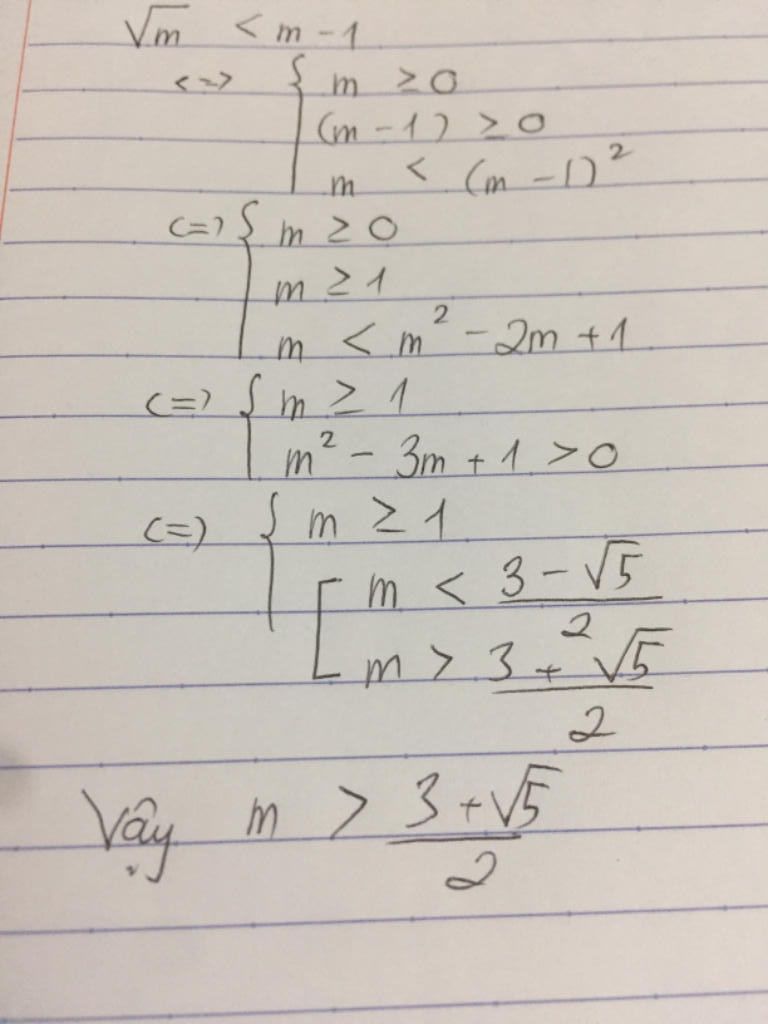 √m < m - 1
<=> { m ≥ 0
(m - 1) ≥ 0
m < (m - 1)²
<=> { m ≥ 0
m ≥ 1
m < m² - 2m + 1
<=> { m ≥ 1
m² - 3m + 1 > 0
<=> { m ≥ 1
[ m < (3 - √5)/2
m > (3 + √5)/2
Vậy m > (3 + √5)/2